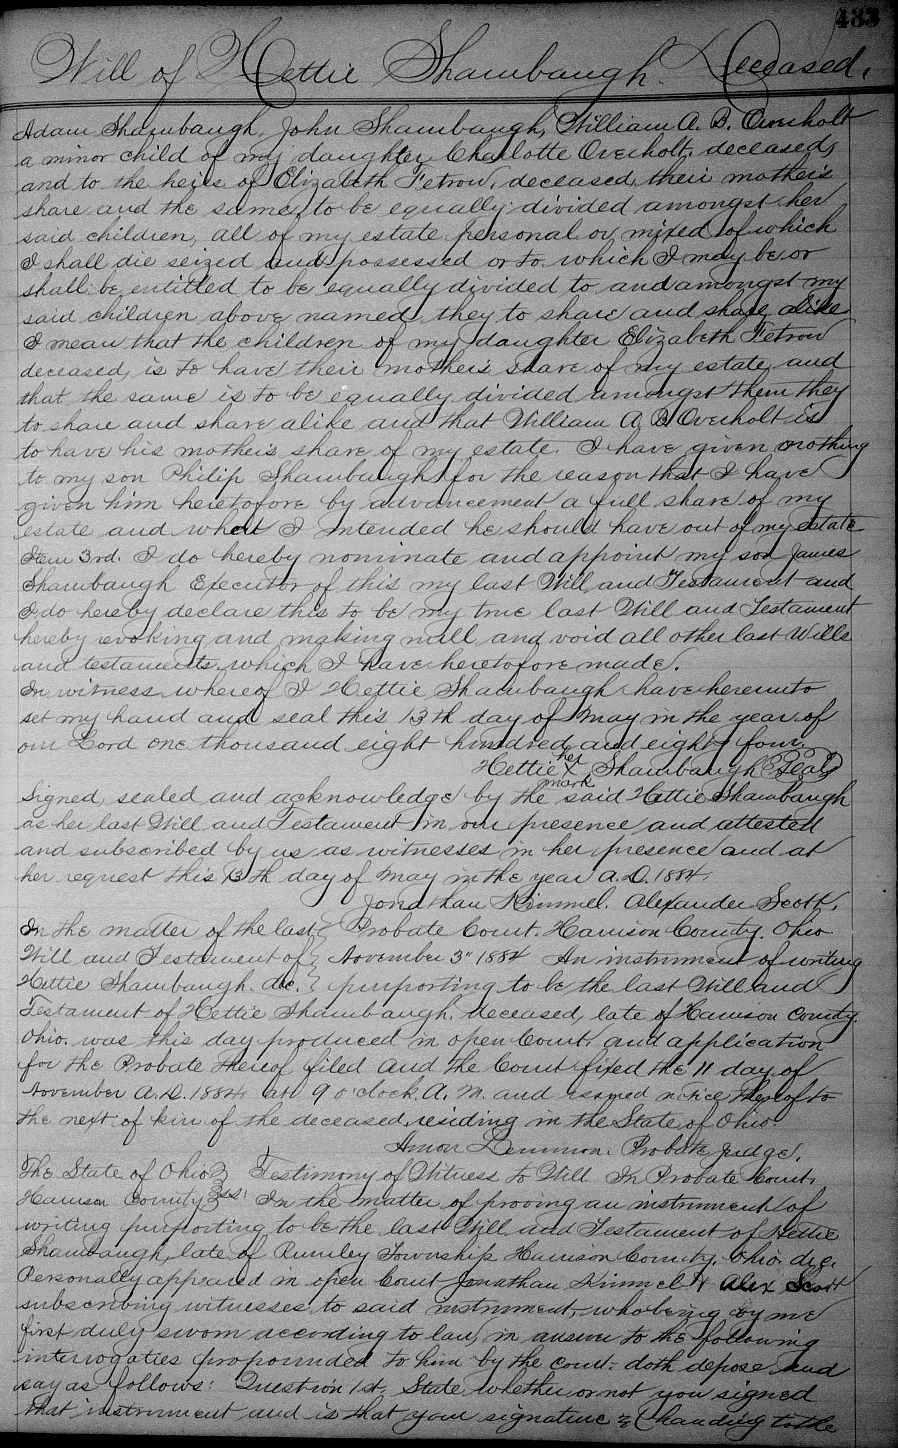 433
Will of Hettie Shambaugh. Deceased.
Adam Shambaugh, John Shambaugh, William A. B. Overholt
a minor child of my daughter Charlotte Overholt, deceased,
and to the heirs of Elizabeth Fetrow, deceased, their mother's
share and the same, to be equally divided amongst her
said children, all of my estate personal or mixed of which
I shall die seized and possessed or to which I may be or
shall be entitled to be equally divided to and amongst my
said children above named, they to share and share alike
I mean that the children of my daughter Elizabeth Fetrow
deceased, is to have their mother's share of my estate and
that the same is to be equally divided amongst them they
to share and share alike and that William A. B. Overholt is
to have his mother's share of my estate. I have given nothing
to my son Philip Shambaugh for the reason that I have
given him heretofore by advancement a full share of my
estate and what I intended he should have out of my estate
Item 3rd. I do hereby nominate and appoint my son James
Shambaugh Executor of this my last Will and Testament and
I do hereby declare this to be my true last Will and Testament
hereby revoking and making null and void all other last Wills
and testaments which I have heretofore made.
In witness whereof I Hettie Shambaugh have hereunto
set my hand and seal this 13th day of May in the year of
our Lord one thousand eight hundred and eighty four.
Hettie her X mark Shambaugh (Seal)
Signed, sealed and acknowledge by the said Hettie Shambaugh
as her last Will and Testament in our presence and attested
and subscribed by us as witnesses in her presence and at
her request this 13th day of May in the year A.D. 1884.
Jonathan Kimmel. Alexander Scott.
In the matter of the last } Probate Court. Harrison County. Ohio
Will and Testament of } November 3" 1884 An instrument of writing
Hettie Shambaugh. dec. } purporting to be the last Will and
Testament of Hettie Shambaugh. deceased, late of Harrison County.
Ohio. was this day produced in open Court and application
for the Probate thereof filed and the Court fixed the 11 day of
November A.D. 1884 at 9 o'clock A.M. and issued notice thereof to
the next of kin of the deceased residing in the State of Ohio.
Amon Lemmon. Probate Judge.
The State of Ohio } Testimony of Witness to Will In Probate Court.
Harrison County } ss: In the matter of proving an instrument of
writing purporting to be the last Will and Testament of Hettie
Shambaugh, late of Rumley Township Harrison County. Ohio. dec.
Personally appeared in open Court Jonathan Kimmel & Alex Scott
subscribing witnesses to said instrument, who being by me
first duly sworn according to law, in answer to the following
interrogaties propounded to him by the court, doth depose and
say as follows: Question 1st. State whether or not you signed
that instrument and is that your signature & (handing to the